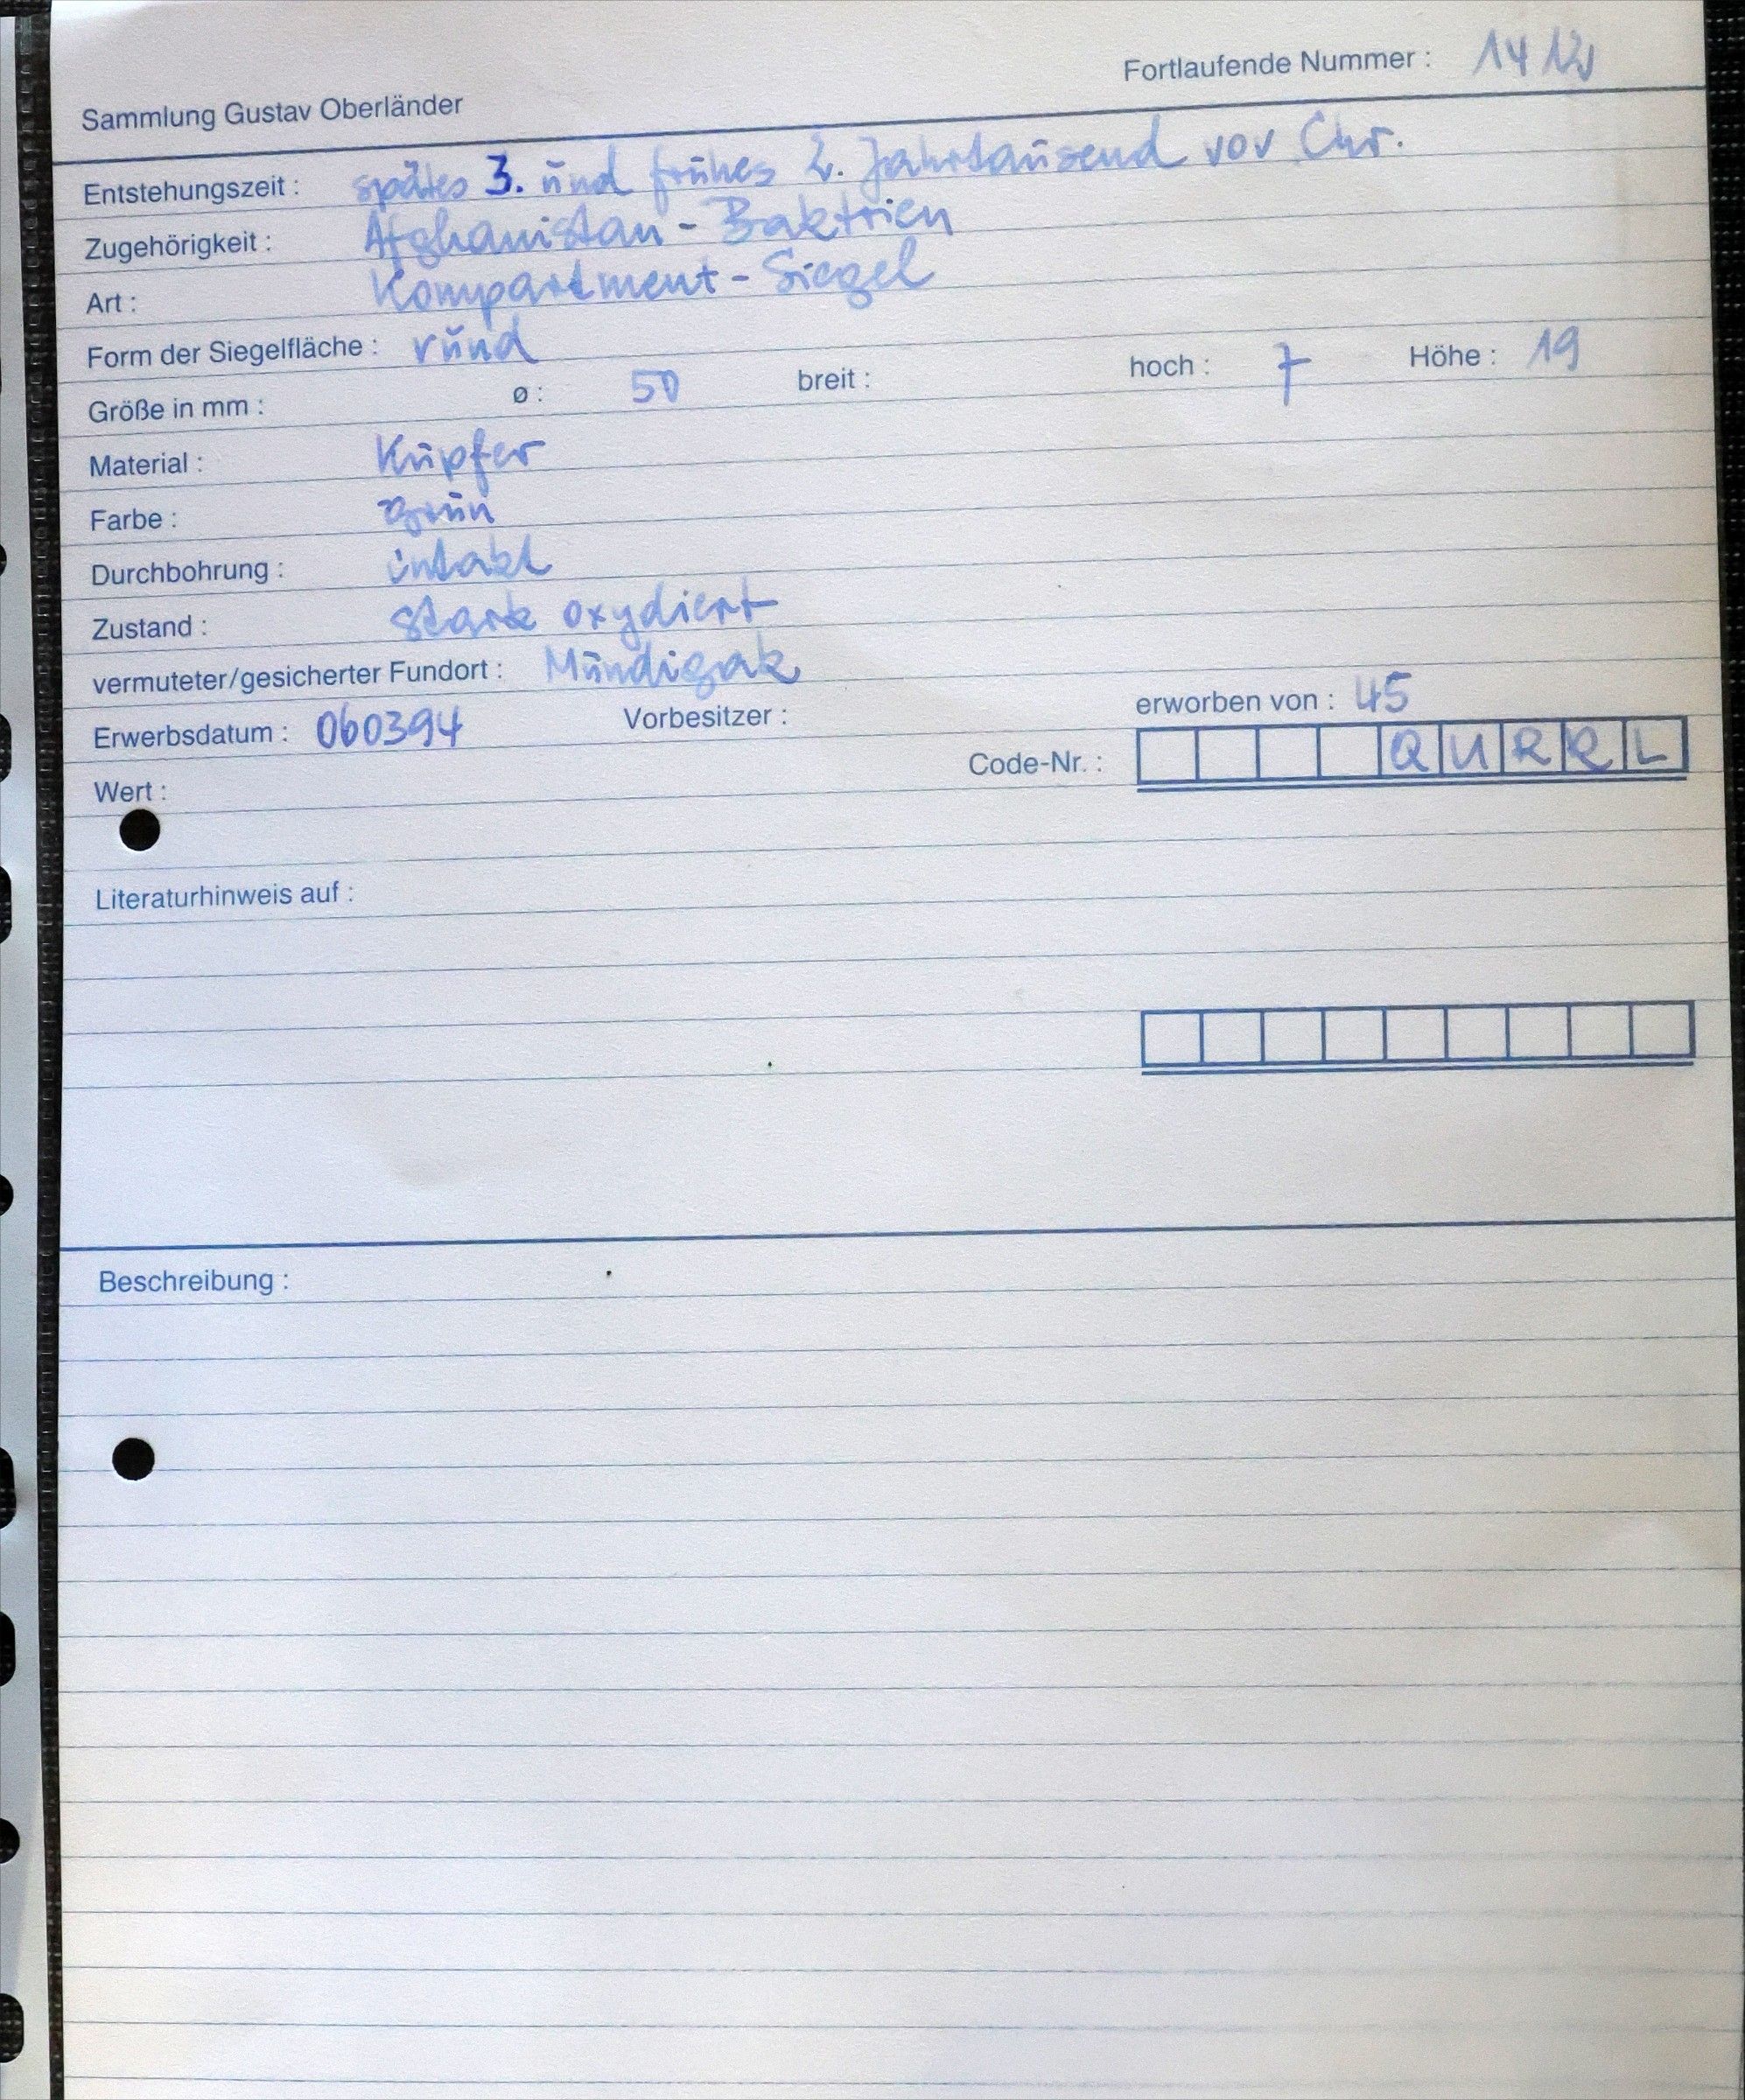 Fortlaufende Nummer : 1412
Sammlung Gustav Oberländer
Entstehungszeit : spätes 3. und frühes 2. Jahrtausend vor Chr.
Zugehörigkeit : Afghanistan - Baktrien
Art : Kompartment - Siegel
Form der Siegelfläche : rund
Größe in mm : ø : 50 breit : hoch : 7 Höhe : 19
Material : Kupfer
Farbe : grün
Durchbohrung : intakt
Zustand : stark oxydiert
vermuteter/gesicherter Fundort : Mundigak
Erwerbsdatum : 060394 Vorbesitzer : erworben von : 45
Wert : Code-Nr. : QURRL
Literaturhinweis auf :
Beschreibung :